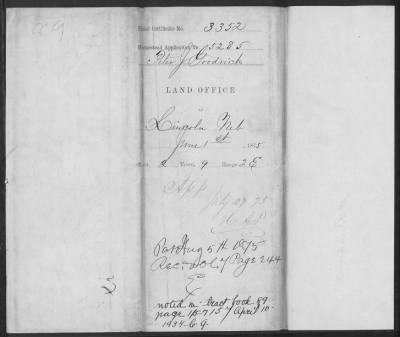 Final Certificate No. 3352
Homestead Application No. 5285
Peter J. Goodrich
LAND OFFICE
Lincoln Neb
June 1st 1875.
Sect. 2 Town. 9 Range 2 E
App
July 27 75
Pat Aug 5th 1875
Rec. Vol. 7 Page 244
noted in tract book 89
page April 10-
1934. C.G.